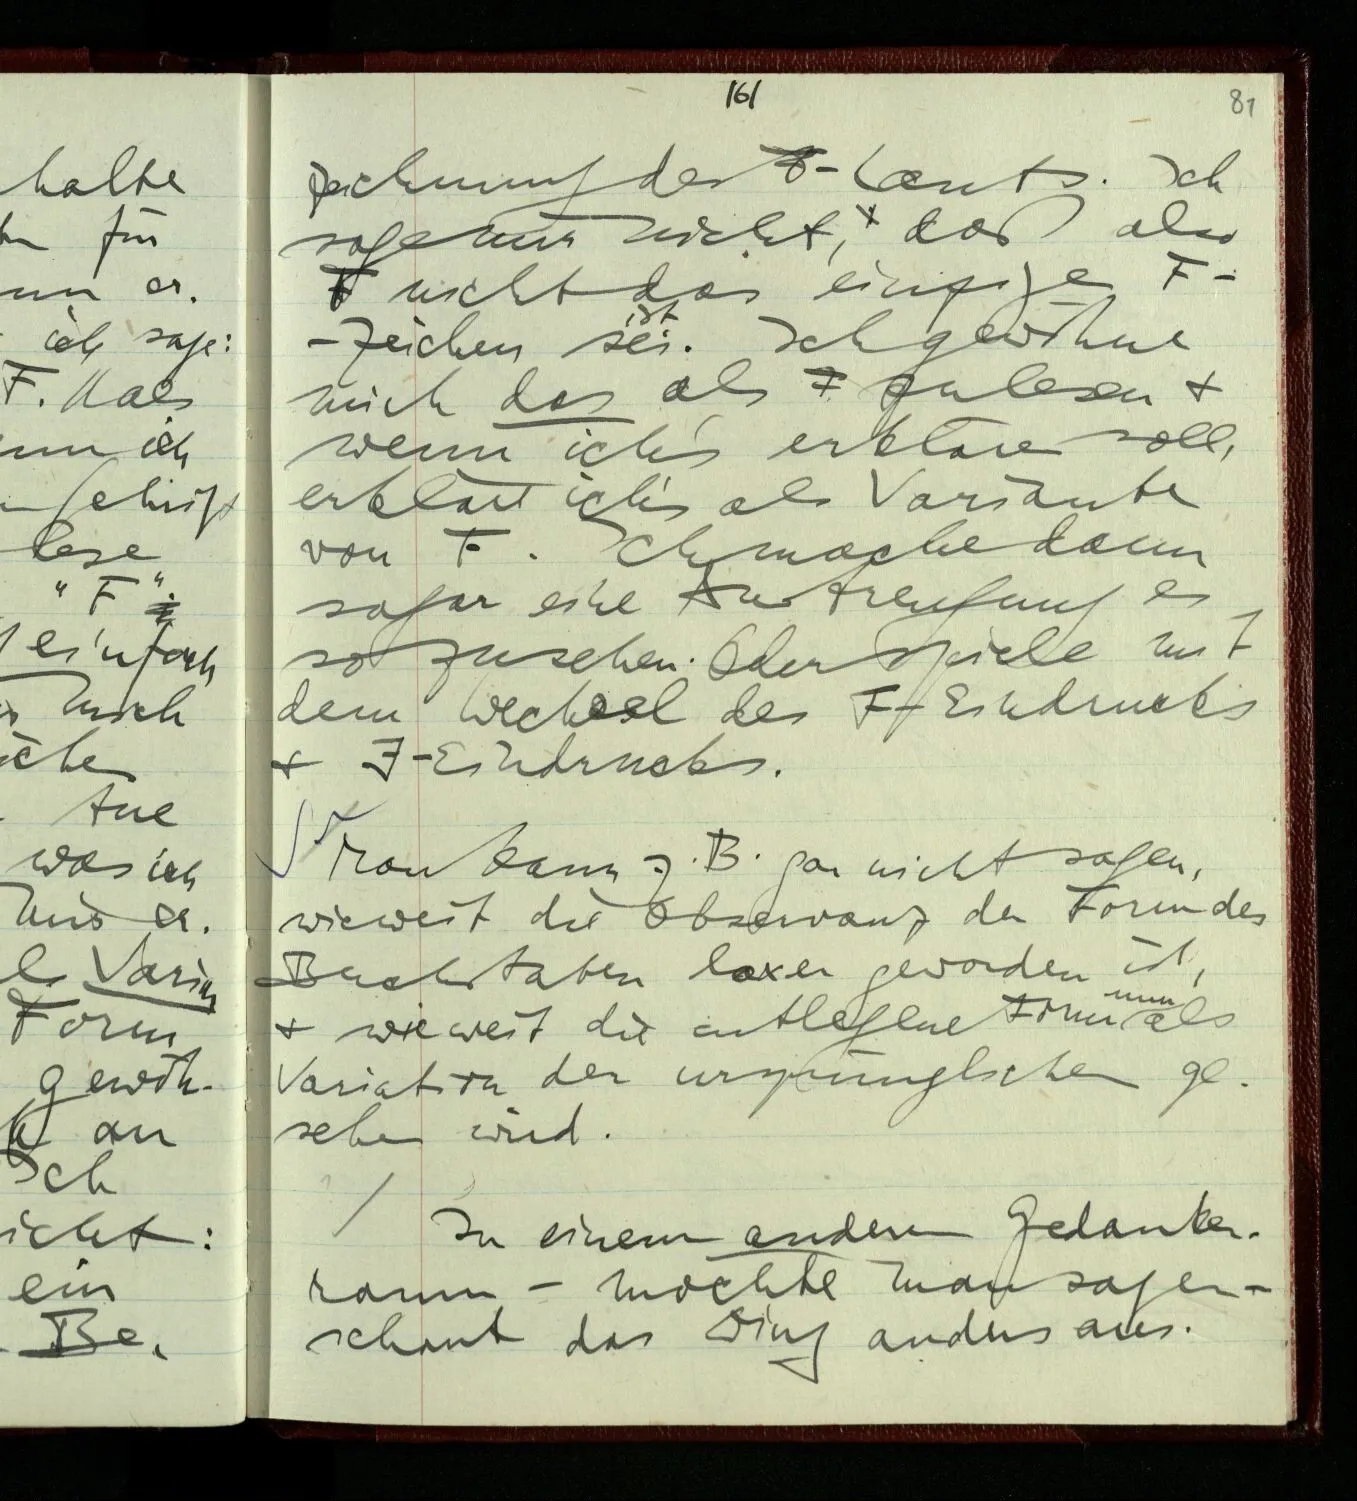 161
81
halte
für
er.
ich sage:
F. Als
ich
lese
"F".
einfach
mich
tue
was ich
mir er.
Form
gewöh-
an
Ich
:
ein
Be-
zeichnung des F-Lauts. Ich
sage nur nicht, daß also
F nicht das einzige F-
-Zeichen sei. ist Ich gewöhne
mich das als F zu lesen &
wenn ich's erklären soll,
erklär ich's als Variante
von F. Ich mache dann
sogar eine Anstrengung es
so zu sehen. Oder spiele mit
dem Wechsel des F-Eindrucks
& Ⅎ-Eindrucks.
Man kann z.B. gar nicht sagen,
wieweit die Observanz der Form des
Buchstaben laxer geworden ist,
& wieweit die entlegene Form nun als
Variation der ursprünglichen ge-
sehen wird.
In einem anderen Gedanken-
raum – möchte man sagen –
schaut das Ding anders aus.